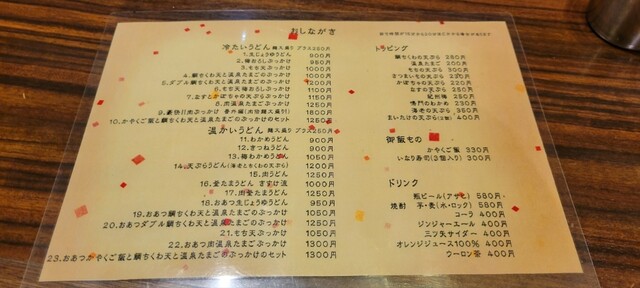 おしながき
冷たいうどん 麺大盛り プラス250円
1.生じょうゆうどん 900円
2.梅おろしぶっかけ 950円
3.もち天ぶっかけ 1000円
4.鯛ちくわ天と温泉たまごのぶっかけ 1000円
5.ダブル鯛ちくわ天と温泉たまごのぶっかけ 1200円
6.もち天梅おろしぶっかけ 1150円
7.なすとかぼちゃの天ぷらぶっかけ 1150円
8.肉温泉たまごぶっかけ 1250円
1800円
10.かやくご飯と鯛ちくわ天と温泉たまごのぶっかけのセット 1250円
温かいうどん 麺大盛り プラス250円
11.わかめうどん 900円
12.きつねうどん 900円
13.梅わかめうどん 1050円
14.天ぷらうどん(海老とちくわの天ぷら) 1200円
15.肉うどん 1250円
16.釜たまうどん さすけ流 1000円
17.肉釜たまうどん 1250円
18.おあつ生じょうゆうどん 950円
19.おあつ鯛ちくわ天と温泉たまごのぶっかけ 1050円
20.おあつダブル鯛ちくわ天と温泉たまごのぶっかけ 1250円
21.もち天ぶっかけ 1050円
22.おあつ肉温泉たまごぶっかけ 1300円
23.おあつかやくご飯と鯛ちくわ天と温泉たまごのぶっかけのセット 1300円
トッピング
鯛ちくわの天ぷら 250円
温泉たまご 200円
もちの天ぷら 300円
さつまいもの天ぷら 220円
かぼちゃの天ぷら 220円
なすの天ぷら 250円
紀州梅 250円
鳴門のわかめ 230円
海老の天ぷら 350円
まいたけの天ぷら 400円
御飯もの
かやくご飯 330円
いなり寿司(3個入り) 300円
ドリンク
瓶ビール(アサヒ) 580円
焼酎 芋・麦(水・ロック) 580円
コーラ 400円
ジンジャーエール 400円
三ツ矢サイダー 400円
オレンジジュース100% 400円
ウーロン茶 400円